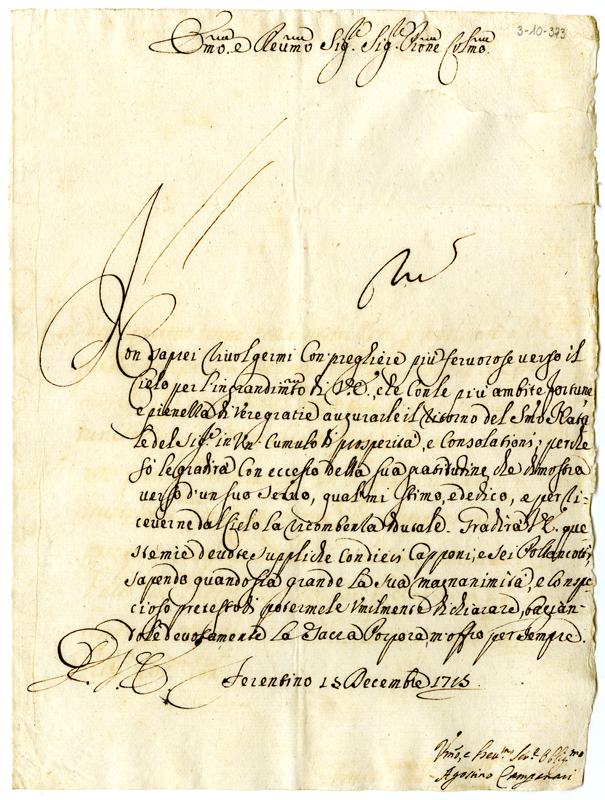 3-10-373
Em̃o. e Reũmo Sig.re Sig.re Pr̃one Col̃mo.
Non saprei rivolgermi con preghiere più fervorose verso il
Cielo per l'ingrandim̃to di V.E., che con le più ambite fortune
e pienezza di vere gratie augurarle il ritorno del Sm̃o Nata
le del Sig.re in un cumulo di prosperità, e consolationi; perche
sò le gradirà con eccesso della sua gratitudine che dimostra
verso d'un suo servo, qual mi stimo, e dedico, e per ri
ceverne dal Cielo la ricompensa ducale. Gradirà V.E. que
ste mie devote suppliche con dieci Capponi, e sei Pollancotti,
sapendo quando sia grande la sua magnanimità, e conspi
cioso pretesto di potermele umilmente dichiarare, baccian
dole devotamente la Sacra Porpora, m'offro per sempre.
D. V. E.
Ferentino 15 Decembre 1715.
Um̃o, e Dev.mo Ser.re Oblig.mo
Agostino Campanari